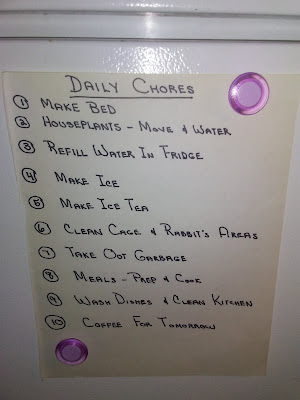 DAILY CHORES
1 MAKE BED
2 HOUSEPLANTS - MOVE & WATER
3 REFILL WATER IN FRIDGE
4 MAKE ICE
5 MAKE ICE TEA
6 CLEAN CAGE & RABBIT'S AREAS
7 TAKE OUT GARBAGE
8 MEALS - PREP & COOK
9 WASH DISHES & CLEAN KITCHEN
10 COFFEE FOR TOMORROW